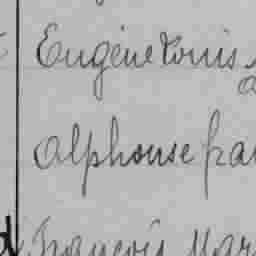 Eugène Louis
Alphonse fra
François Mar